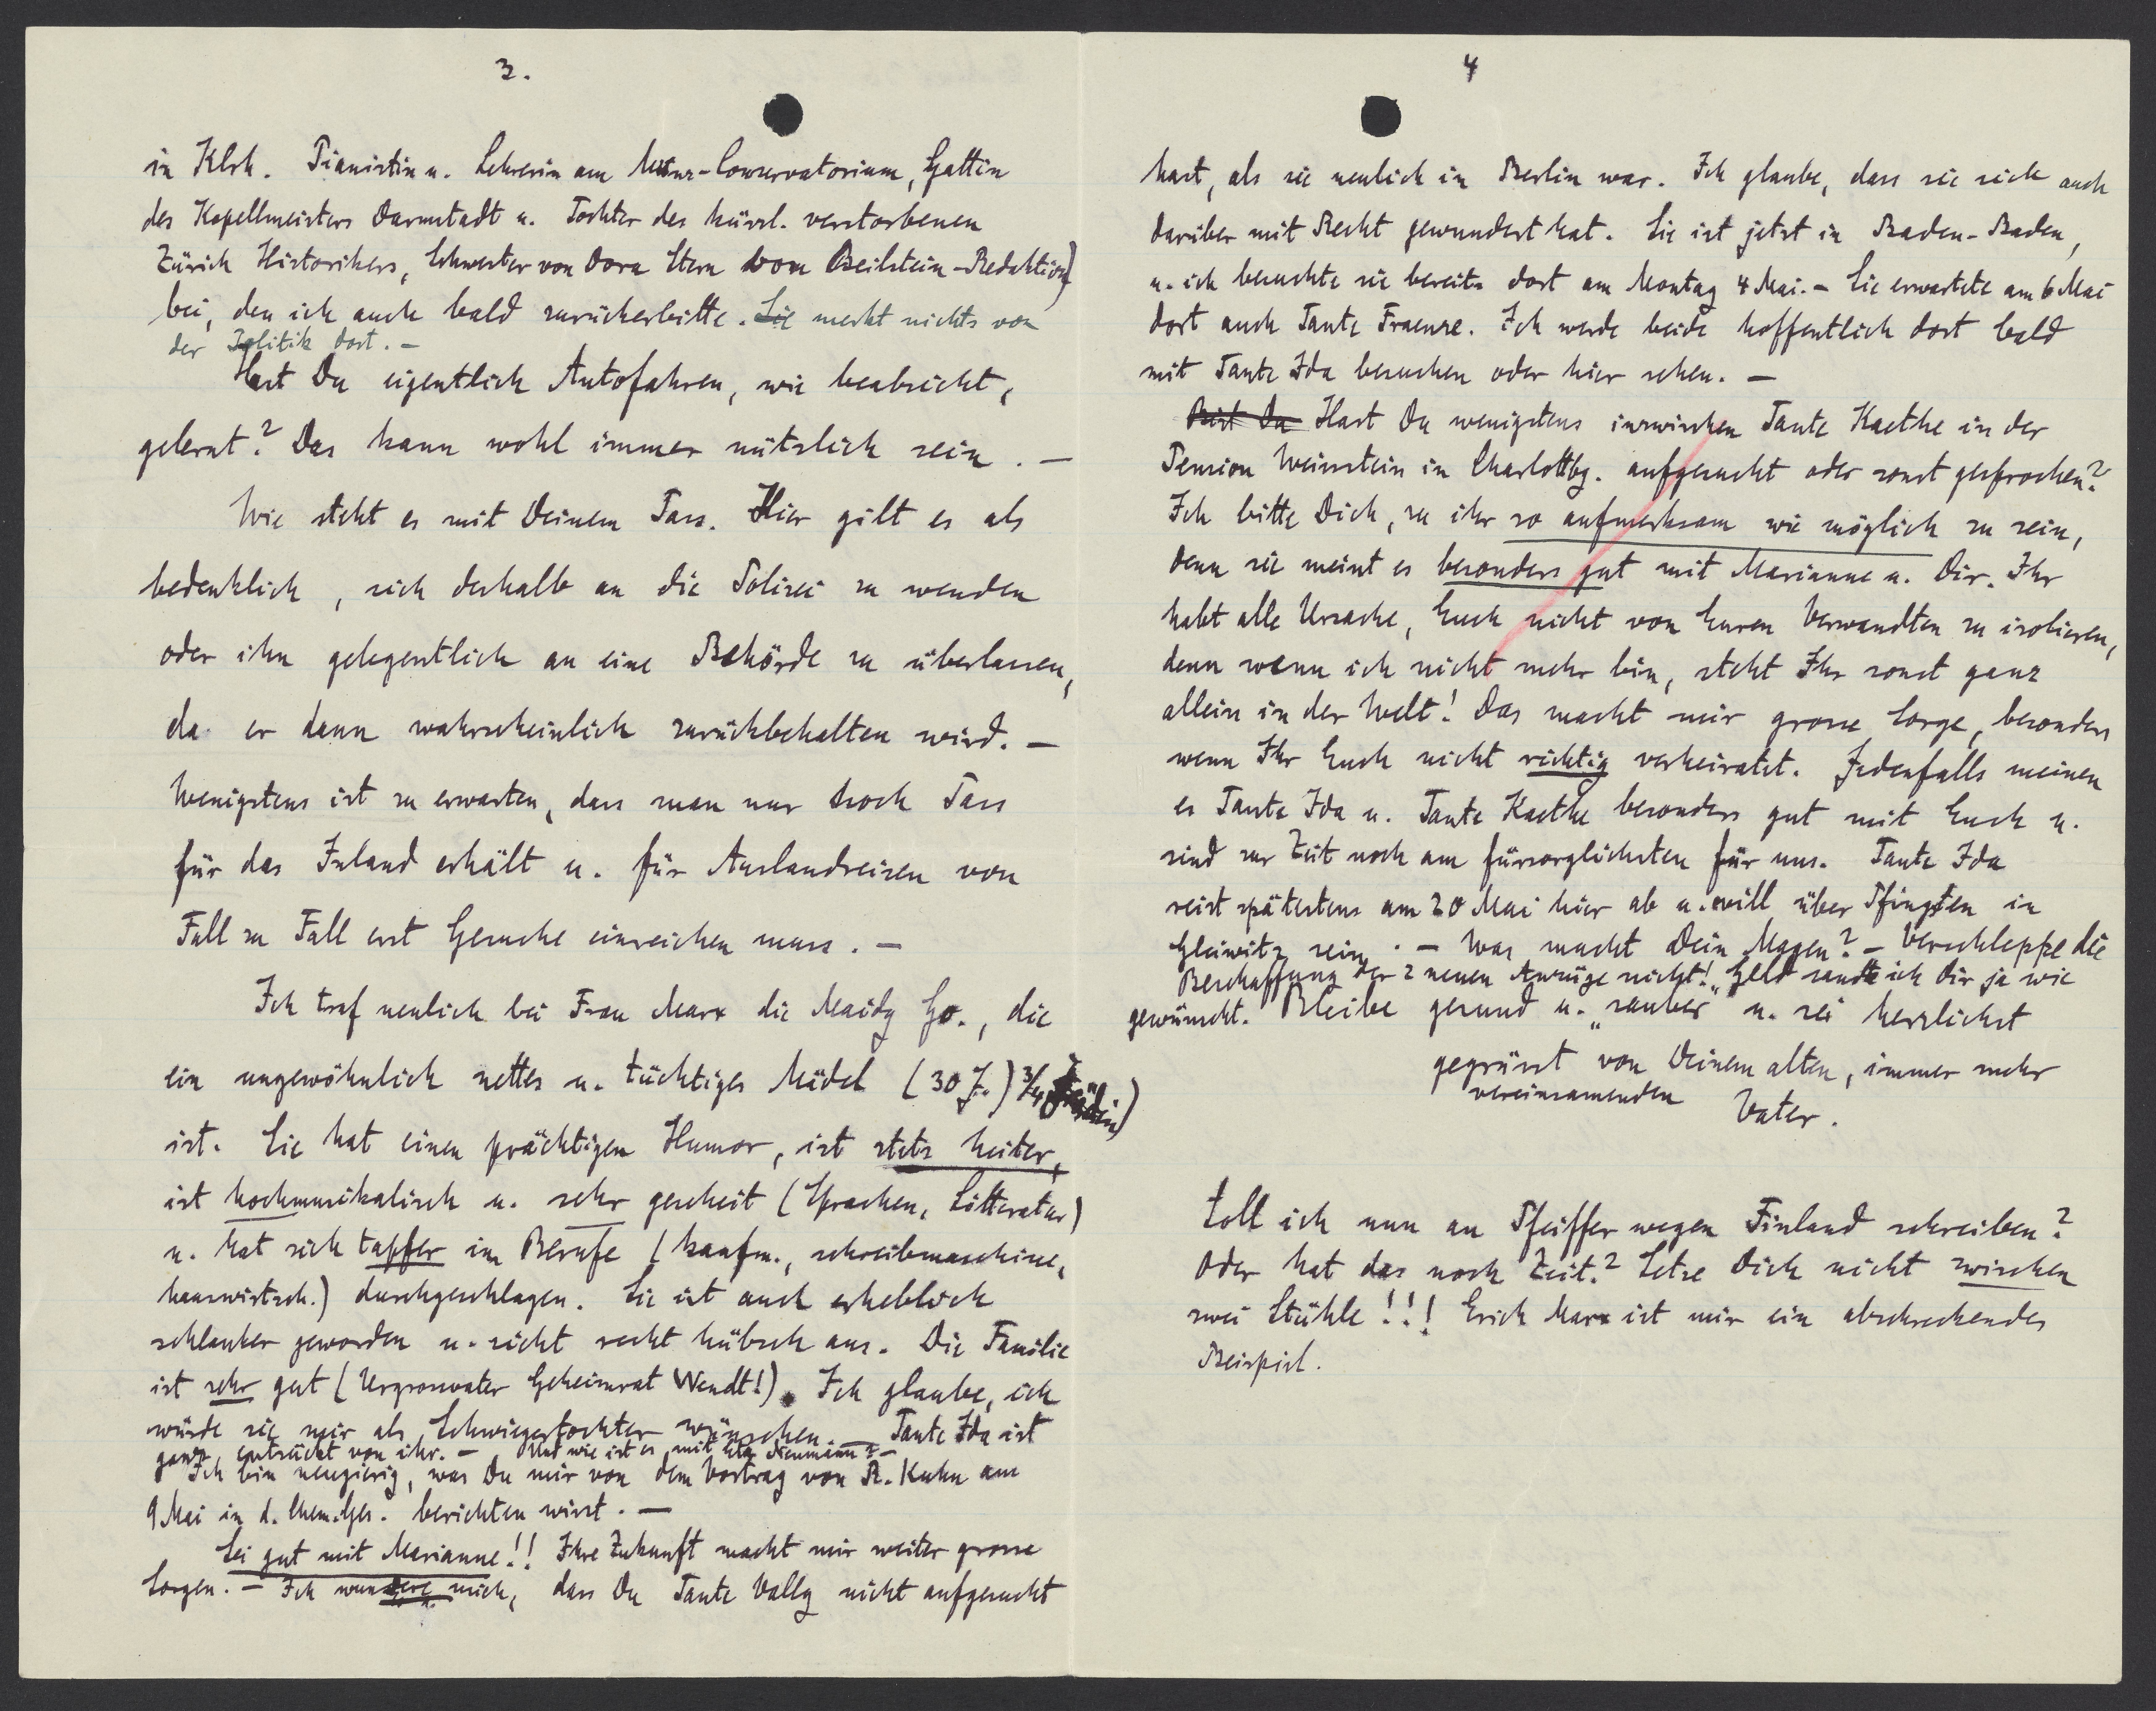 3.
in Klrh. Pianistin u. Lehrerin am Munz-Conservatorium, Gattin
des Kapellmeisters Darmstadt u. Tochter des kürzl. verstorbenen
Zürich Historikers, Schwester von Dora Stern von Beilstein-Redaktion)
bei, den ich auch bald zurückerbitte. Sie merkt nichts von
der Politik dort. —
Hast Du eigentlich Autofahren, wie beabsicht,
gelernt? Das kann wohl immer nützlich sein. —
Wie steht es mit Deinem Pass. Hier gilt es als
bedenklich, sich deshalb an die Polizei zu wenden
oder ihn gelegentlich an eine Behörde zu überlassen,
da er dann wahrscheinlich zurückbehalten wird. —
Wenigstens ist zu erwarten, dass man nur noch Pass
für das Inland erhält u. für Auslandreisen von
Fall zu Fall erst Gesuche einreichen muss. —
Ich traf neulich bei Frau Marx die Maidy Go., die
ein ungewöhnlich nettes u. tüchtiges Mädel (30 J.) 3/4
ist. Sie hat einen prächtigen Humor, ist stets heiter,
ist hochmusikalisch u. sehr gescheit (Sprachen, Litteratur)
u. hat sich tapfer im Berufe (kaufm., schreibmaschine,
hauswirtsch.) durchgeschlagen. Sie ist auch erheblich
schlanker geworden u. sieht recht hübsch aus. Die Familie
ist sehr gut (Urgrossvater Geheimrat Wendt!). Ich glaube, ich
würde sie mir als Schwiegertochter wünschen. — Tante Ida ist
ganz entzückt von ihr. — Und wie ist es mit Neumann? —
Ich bin neugierig, was Du mir von dem Vortrag von R. Kuhn am
9 Mai in d. Chem. Ges. berichten wirst. —
Sei gut mit Marianne!! Ihre Zukunft macht mir weiter grosse
Sorgen. — Ich wundere mich, dass Du Tante Vally nicht aufgesucht
4
hast, als sie neulich in Berlin war. Ich glaube, dass sie sich auch
darüber mit Recht gewundert hat. Sie ist jetzt in Baden-Baden,
u. ich besuchte sie bereits dort am Montag 4 Mai. — Sie erwartete am 6 Mai
dort auch Tante Fraenze. Ich werde beide hoffentlich dort bald
mit Tante Ida besuchen oder hier sehen. —
Bist Du Hast Du wenigstens inzwischen Tante Kaethe in der
Pension Weinstein in Charlottbg. aufgesucht oder sonst gesprochen?
Ich bitte Dich, zu ihr so aufmerksam wie möglich zu sein,
denn sie meint es besonders gut mit Marianne u. Dir. Ihr
habt alle Ursache, Euch nicht von Euren Verwandten zu isolieren,
denn wenn ich nicht mehr bin, steht Ihr sonst ganz
allein in der Welt! Das macht mir grosse Sorge, besonders
wenn Ihr Euch nicht richtig verheiratet. Jedenfalls meinen
es Tante Ida u. Tante Kaethe besonders gut mit Euch u.
sind zur Zeit noch am fürsorglichsten für uns. Tante Ida
reist spätestens am 20 Mai hier ab u. will über Pfingsten in
Gleiwitz sein. — Was macht Dein Magen? — Verschleppe die
Beschaffung der 2 neuen Anzüge nicht! Geld sandte ich Dir ja wie
gewünscht. Bleibe gesund u. „sauber" u. sei herzlichst
gegrüsst von Deinem alten, immer mehr
vereinsamenden Vater.
Soll ich nun an Pfeiffer wegen Finland schreiben?
Oder hat das noch Zeit? Setze Dich nicht zwischen
zwei Stühle!!! Erich Marx ist mir ein abschreckendes
Beispiel.